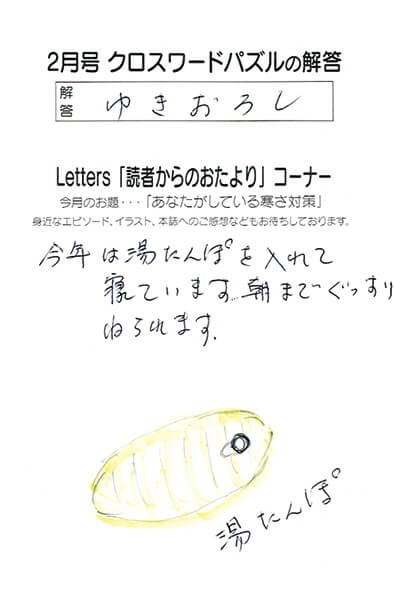 2月号 クロスワードパズルの解答
解答 ゆきおろし
Letters「読者からのおたより」コーナー
今月のお題・・・「あなたがしている寒さ対策」
身近なエピソード、イラスト、本誌へのご感想などもお待ちしております。
今年は湯たんぽを入れて
寝ています。朝までぐっすり
ねられます.
湯たんぽ